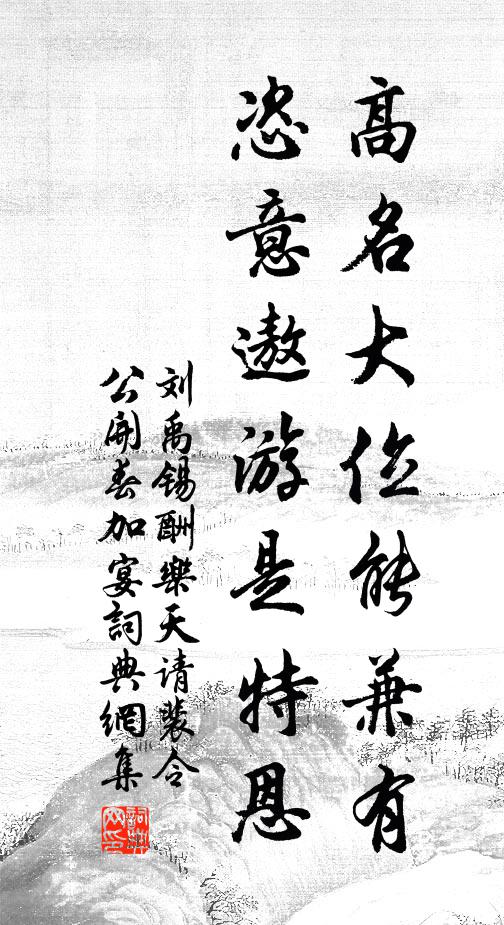 高名大位能兼有
恣意遨游是特恩
刘禹锡酬樂天请裴令
公開春加宴詞典網集